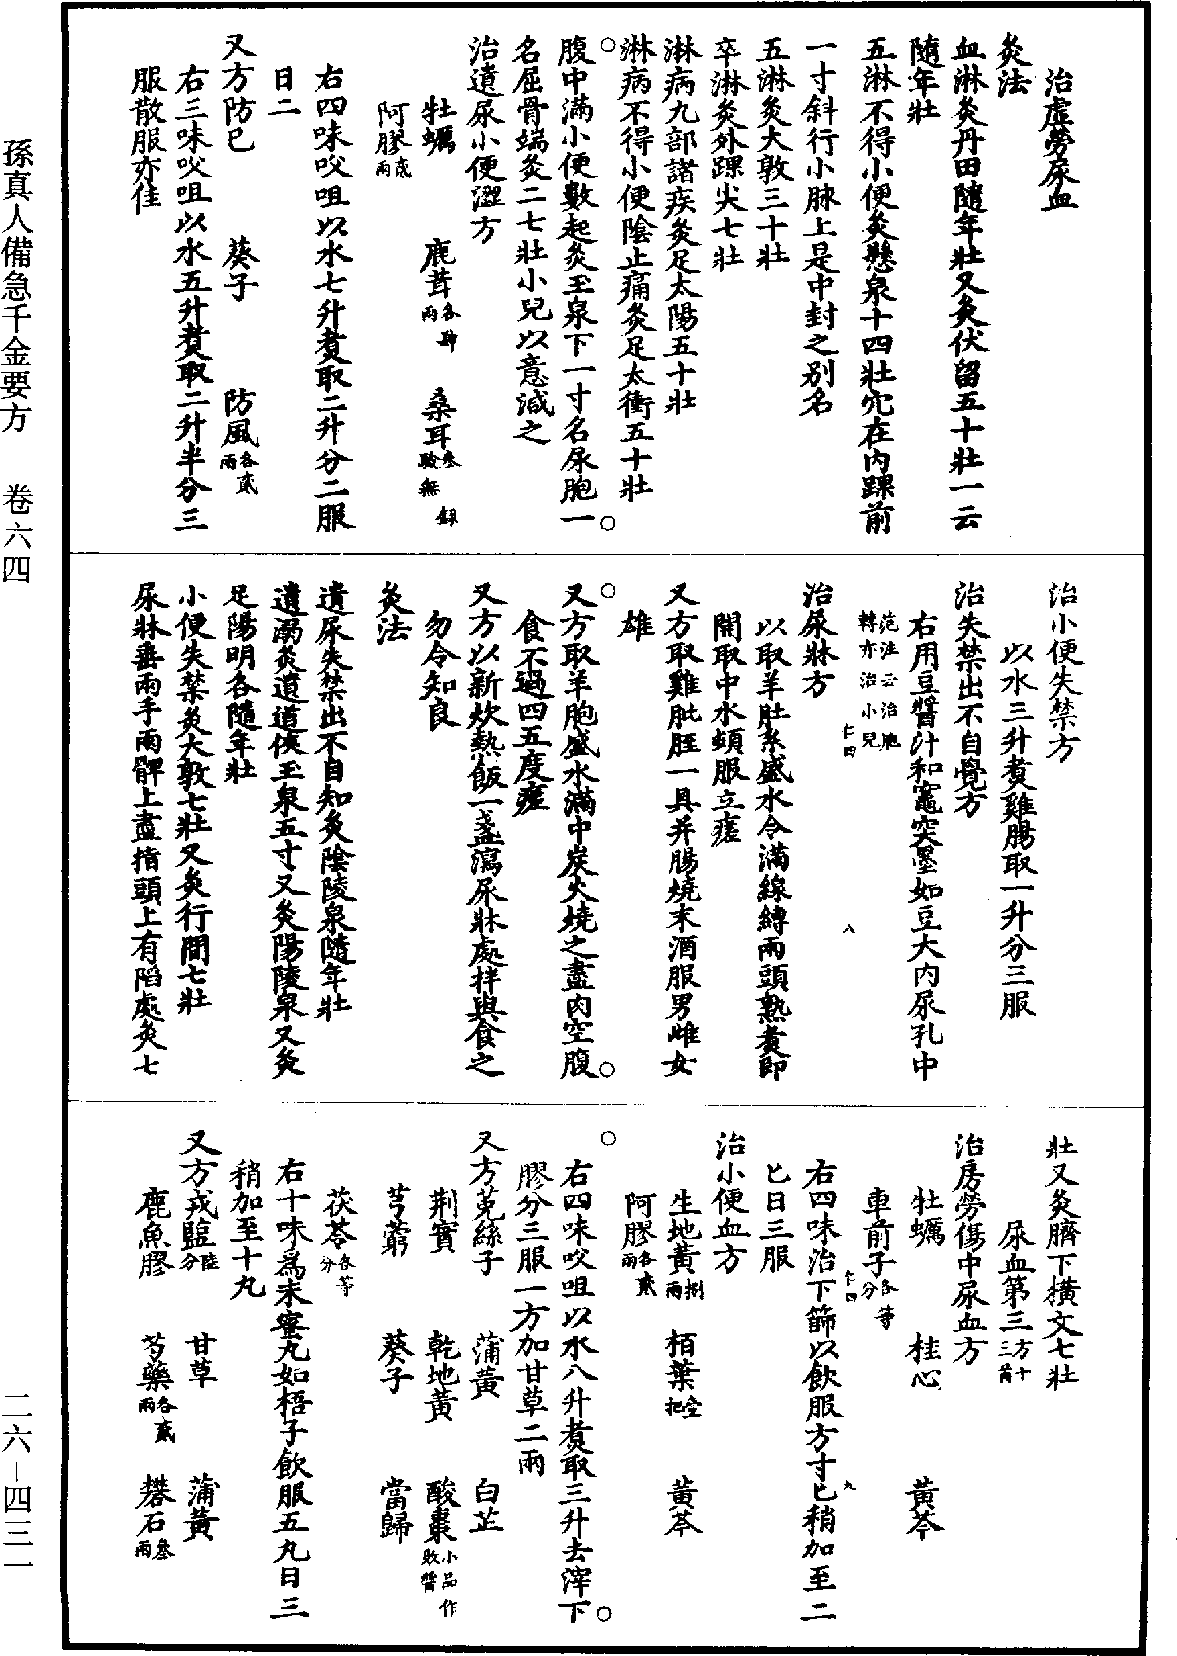 治虛勞尿血
灸法
血淋灸丹田隨年壯又灸伏留五十壯一云
隨年壯
五淋不得小便灸懸泉十四壯穴在內踝前
一寸斜行小脉上是中封之別名
五淋灸大敦三十壯
卒淋灸外踝尖七壯
淋病九部諸疾灸足太陽五十壯
淋病不得小便陰止痛灸足太衝五十壯
○腹中滿小便數起灸玉泉下一寸名尿胞一○
名屈骨端灸二七壯小兒以意減之
治遺尿小便澀方
牡蠣 鹿茸各肆兩 桑耳叁兩無錄
阿膠貳兩
右四味㕮咀以水七升煑取二升分二服
日二
又方防已 葵子 防風各貳兩
右三味㕮咀以水五升煑取二升半分三
服散服亦佳
治小便失禁方
以水三升煑雞腸取一升分三服
治失禁出不自覺方
右用豆醬汁和竈突墨如豆大內尿孔中
范汪云治胞轉亦治小兒
治尿牀方
以取羊肚系盛水令滿線縛兩頭熟煑即
開取中水頓服立瘥
又方取雞肶胵一具并腸燒末酒服男雌女
雄
○又方取羊胞盛水滿中炭火燒之盡肉空腹○
食不過四五度瘥
又方以新炊熱飯一盞瀉尿牀處拌與食之
勿令知良
灸法
遺尿失禁出不自知灸陰陵泉隨年壯
遺溺灸遺道俠玉泉五寸又灸陽陵泉又灸
足陽明各隨年壯
小便失禁灸大敦七壯又灸行間七壯
尿牀垂兩手兩髀上盡指頭上有陷處灸七
壯又灸臍下橫文七壯
尿血第三方十三首
治房勞傷中尿血方
牡蠣 桂心 黃芩
車前子各等分
右四味治下篩以飲服方寸匕稍加至二
匕日三服
治小便血方
生地黃捌兩 栢葉壹把 黃芩
阿膠各貳兩
○右四味㕮咀以水八升煑取三升去滓下○
膠分三服一方加甘草二兩
又方菟絲子 蒲黃 白芷
荊實 乾地黃 酸棗小品作敗醬
芎藭 葵子 當歸
茯苓各等分
右十味爲末蜜丸如梧子飲服五丸日三
稍加至十丸
又方戎鹽陸分 甘草 蒲黃
鹿角膠 芍藥各貳兩 礬石叁兩
孫真人備急千金要方 卷六四
二六－四三一